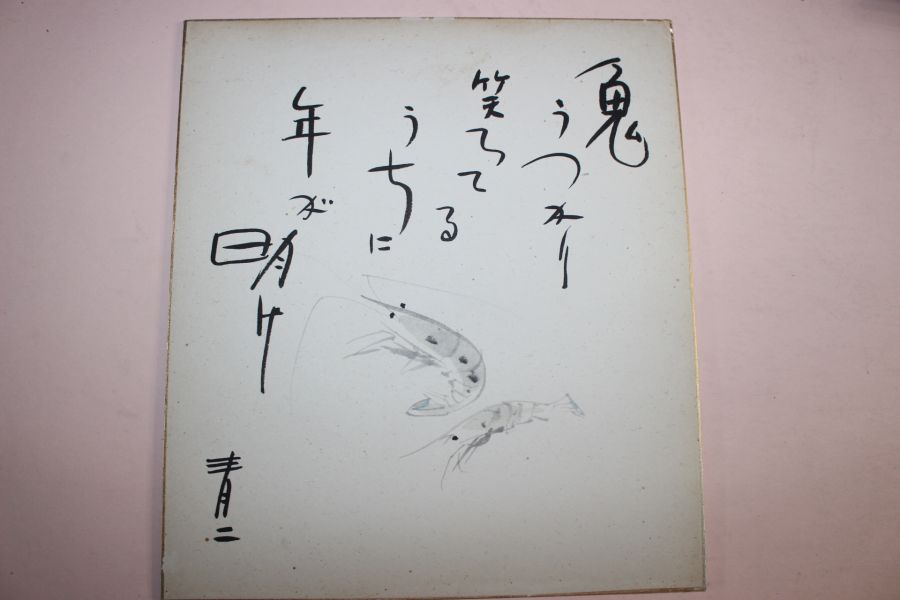 鬼
うつかり
笑ってる
うちに
年が
明け
青二